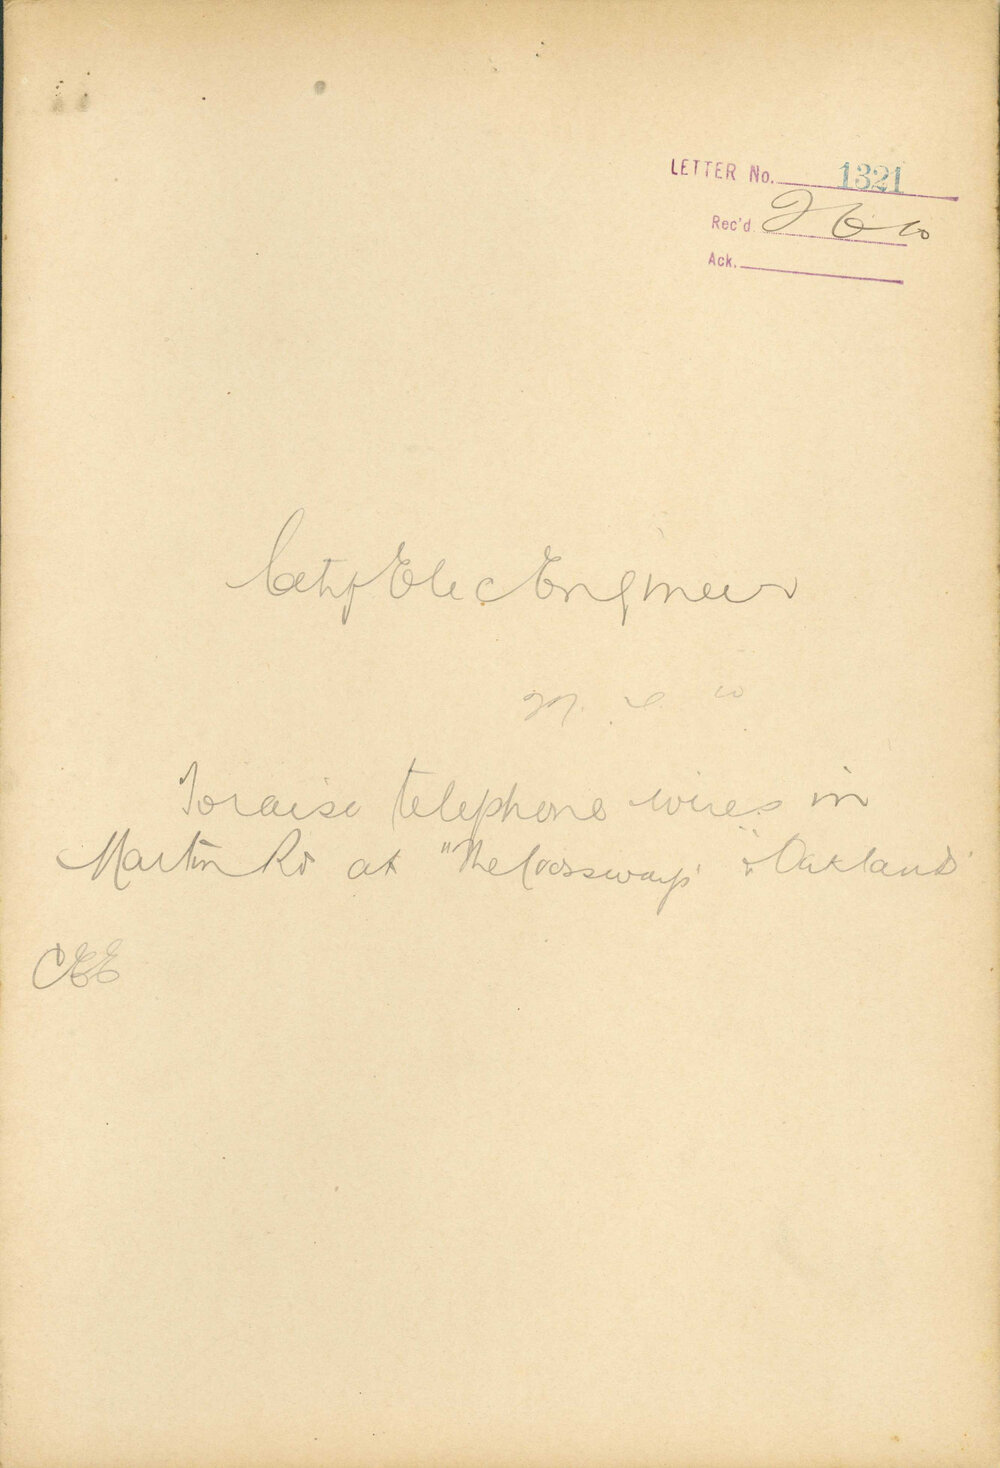 LETTER No. 1321
Rec'd 2 6 10
Ack.
City Elec Engineer
To raise telephone wires in
Martin Rd at "The Crossways" & "Oakland"
CEE